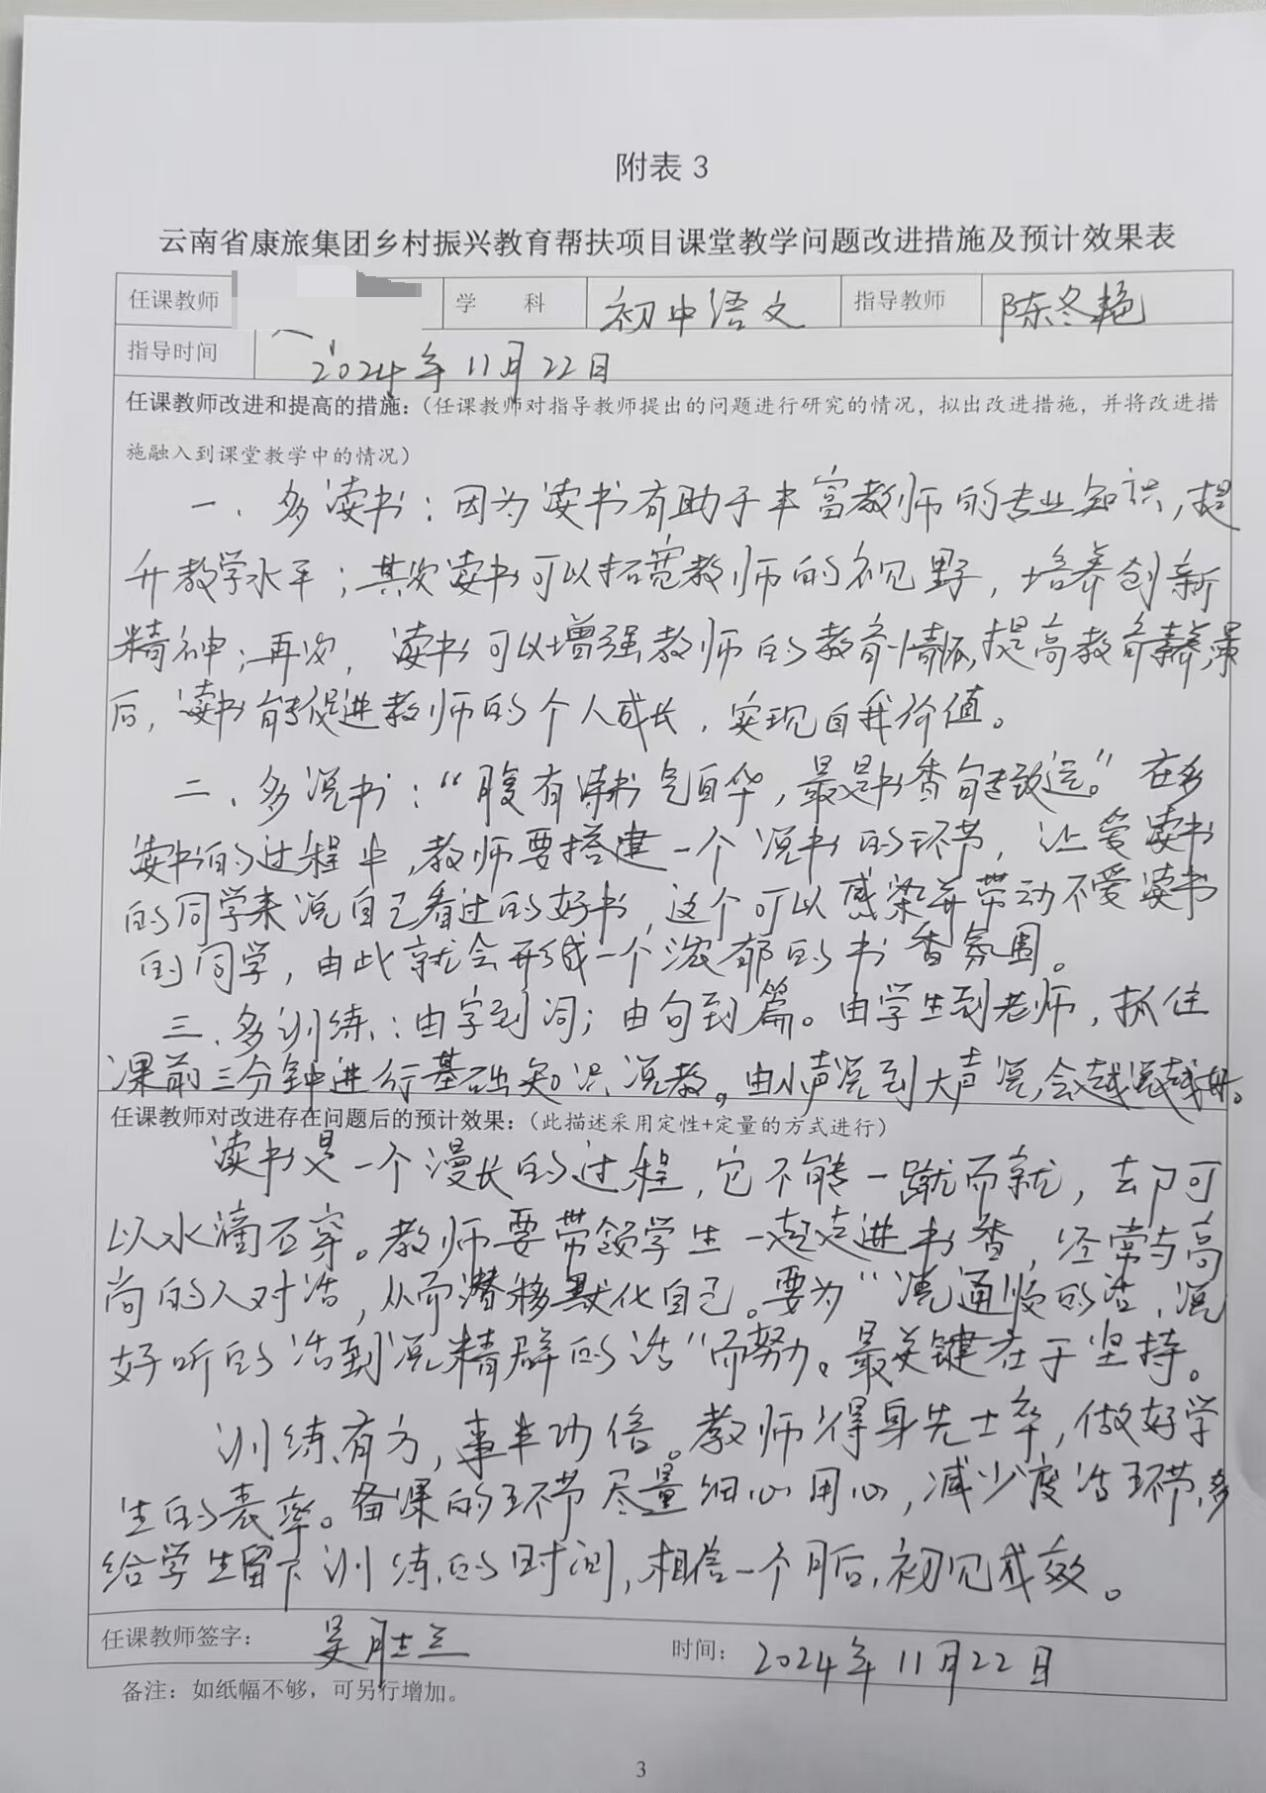 附表 3
云南省康旅集团乡村振兴教育帮扶项目课堂教学问题改进措施及预计效果表
任课教师 学 科 初中语文 指导教师 陈冬艳
指导时间 2024年11月22日
任课教师改进和提高的措施：（任课教师对指导教师提出的问题进行研究的情况，拟出改进措施，并将改进措
施融入到课堂教学中的情况）
一、多读书：因为读书有助于丰富教师的专业知识，提
升教学水平；其次读书可以拓宽教师的视野，培养创新
精神；再次，读书可以增强教师的教育情怀，提高教育素养，最
后，读书能促进教师的个人成长，实现自我价值。
二、多说书：“腹有诗书气自华，最是书香能致远。”在多
读书的过程中，教师要搭建一个说书的环节，让爱读书
的同学来说自己看过的好书，这个可以感染并带动不爱读书
的同学，由此就会形成一个浓郁的书香氛围。
三、多训练：由字到词；由句到篇。由学生到老师，抓住
课前三分钟进行基础知识说教。由小声说到大声说，会越说越好。
任课教师对改进存在问题后的预计效果：（此描述采用定性+定量的方式进行）
读书是一个漫长的过程，它不能一蹴而就，却可
以水滴石穿。教师要带领学生一起走进书香，经常与高
尚的人对话，从而潜移默化自己。要为“说通顺的话，说
好听的话到说精辟的话”而努力。最关键在于坚持。
训练有方，事半功倍。教师得身先士卒，做好学
生的表率。备课的环节尽量细心用心，减少废话环节，多
给学生留下训练的时间，相信一个月后，初见成效。
任课教师签字： 吴胜兰 时间： 2024年11月22日
备注：如纸幅不够，可另行增加。
3